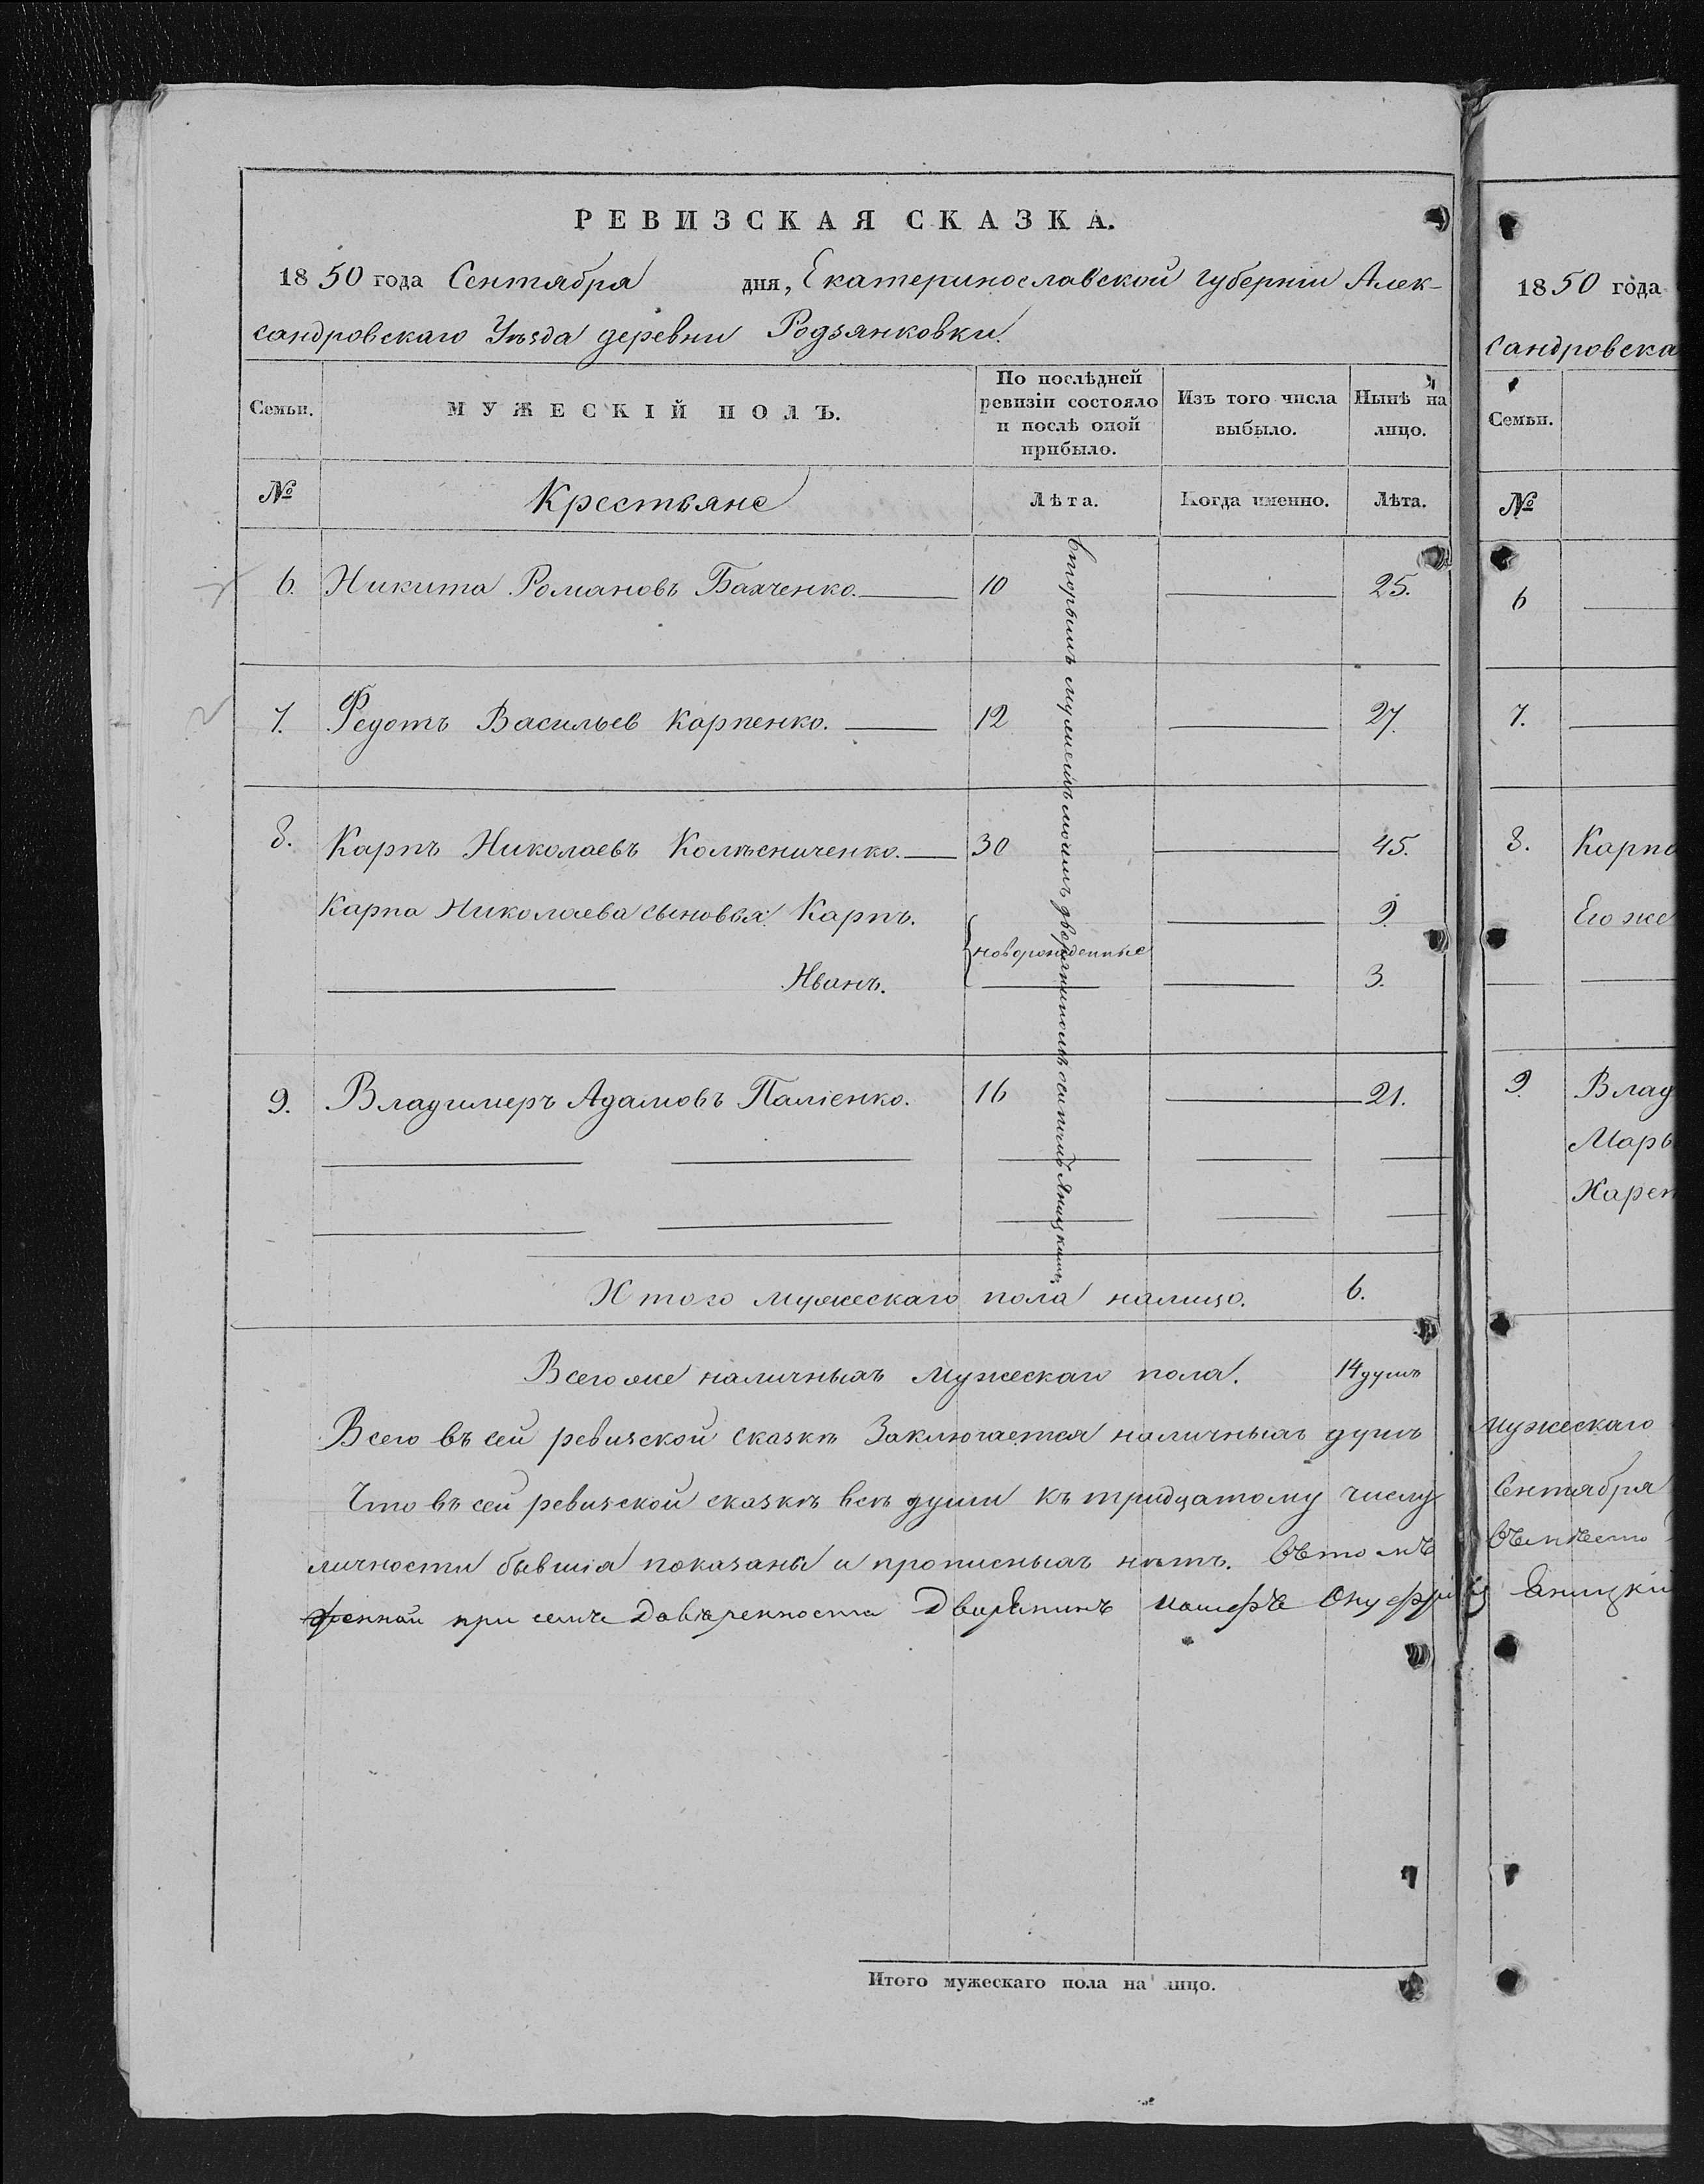 РЕВИЗСКАЯ СКАЗКА.
1850 года Сентября дня, Екатеринославской губерніи Алек-
сандровскаго Уѣзда деревни Родзянковки.
Семьи. МУЖЕСКІЙ ПОЛЪ. По послѣдней ревизіи состояло и послѣ оной прибыло. Изъ того числа выбыло. Нынѣ на лицо.
№ Крестьяне Лѣта. Когда именно. Лѣта.
6. Никита Романовъ Бахченко. 10 25.
7. Федотъ Васильев Карпенко. 12 27.
8. Карпъ Николаевъ Колѣсниченко. 30 45.
Карпа Николаева сыновья Карпъ. 9.
новорожденные
Иванъ. 3.
9. Владимеръ Адамовъ Паліенко. 16 21.
вторымъ мужемъ моимъ дворяниномъ Яницкимъ
Итого мужескаго пола налицо. 6.
Всего же наличныхъ мужескаго пола. 14 душъ
Всего въ сей ревизской сказкѣ Заключается наличныхъ душъ
Что въ сей ревизской сказкѣ всѣ души къ тридцатому числу
личности бывшія показаны и прописныхъ нѣтъ. Вътомъ
женной при семъ Довѣренности Дворянинъ Онуфрій
Итого мужескаго пола на лицо.
1850 года
сандровска
Семьи.
№
6
7.
8. Карпа
Его же
9. Влад
Марь
Харет
мужескаго
Сентября
въмѣсто
Яницкій